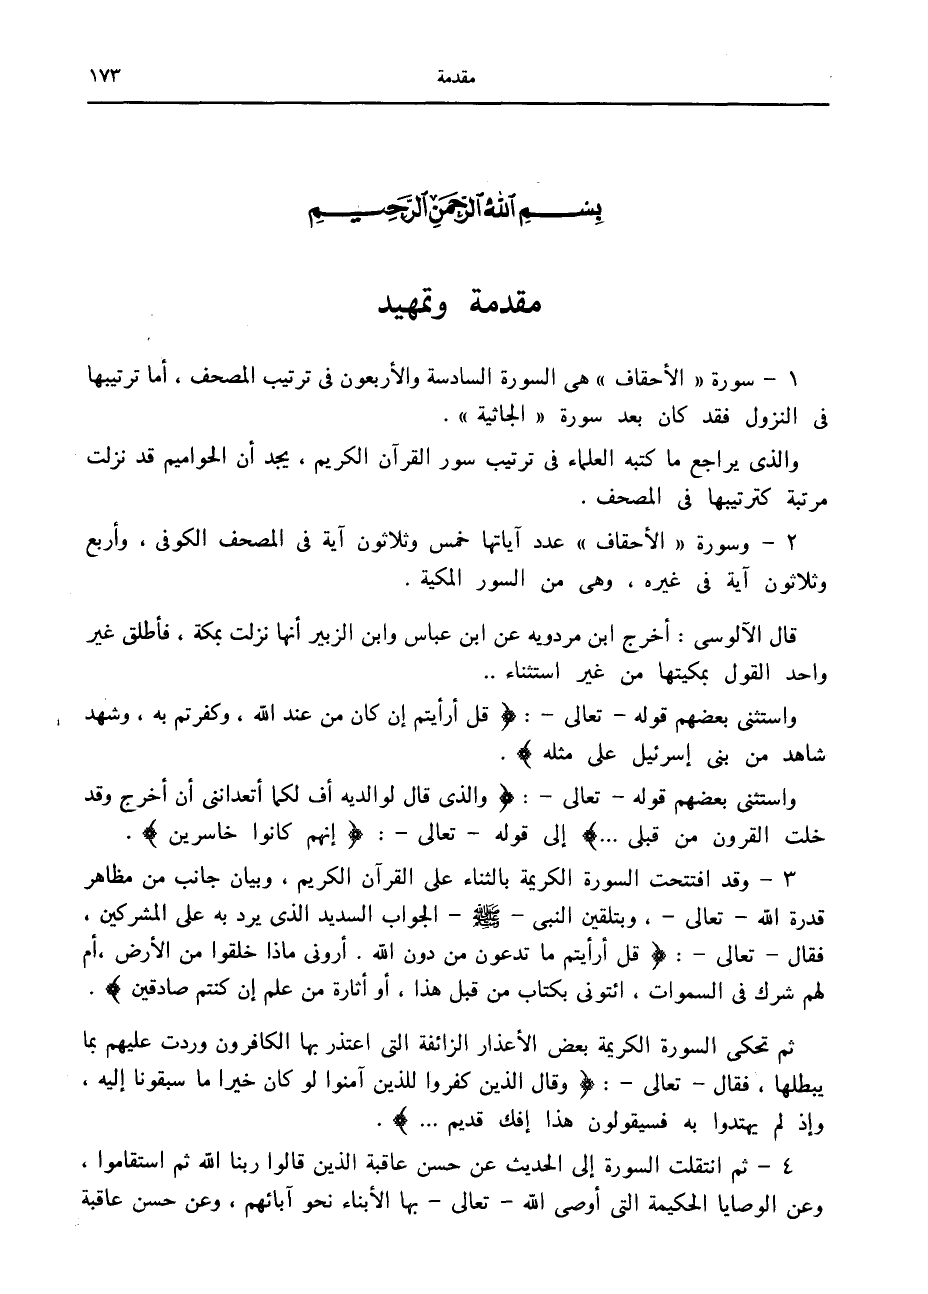 مقدمة ١٧٣
بِسْمِ اللَّهِ الرَّحْمَٰنِ الرَّحِيمِ
مقدمة وتمهيد
١ - سورة « الأحقاف » هى السورة السادسة والأربعون فى ترتيب المصحف ، أما ترتيبها
فى النزول فقد كان بعد سورة « الجاثية » .
والذى يراجع ما كتبه العلماء فى ترتيب سور القرآن الكريم ، يجد أن الحواميم قد نزلت
مرتبة كترتيبها فى المصحف .
٢ - وسورة « الأحقاف » عدد آياتها خمس وثلاثون آية فى المصحف الكوفى ، وأربع
وثلاثون آية فى غيره ، وهى من السور المكية .
قال الآلوسى : أخرج ابن مردويه عن ابن عباس وابن الزبير أنها نزلت بمكة ، فأطلق غير
واحد القول بمكيتها من غير استثناء ..
واستثنى بعضهم قوله - تعالى - : ﴿ قل أرأيتم إن كان من عند الله ، وكفرتم به ، وشهد
شاهد من بنى إسرئيل على مثله ﴾ .
واستثنى بعضهم قوله - تعالى - : ﴿ والذى قال لوالديه أف لكما أتعداننى أن أخرج وقد
خلت القرون من قبلى ...﴾ إلى قوله - تعالى - : ﴿ إنهم كانوا خاسرين ﴾ .
٣ - وقد افتتحت السورة الكريمة بالثناء على القرآن الكريم ، وبيان جانب من مظاهر
قدرة الله - تعالى - ، وبتلقين النبى - ﷺ - الجواب السديد الذى يرد به على المشركين ،
فقال - تعالى - : ﴿ قل أرأيتم ما تدعون من دون الله . أرونى ماذا خلقوا من الأرض ،أم
لهم شرك فى السموات ، ائتونى بكتاب من قبل هذا ، أو أثارة من علم إن كنتم صادقين ﴾ .
ثم تحكى السورة الكريمة بعض الأعذار الزائفة التى اعتذر بها الكافرون وردت عليهم بما
يبطلها ، فقال - تعالى - : ﴿ وقال الذين كفروا للذين آمنوا لو كان خيرا ما سبقونا إليه ،
وإذ لم يهتدوا به فسيقولون هذا إفك قديم ... ﴾ .
٤ - ثم انتقلت السورة إلى الحديث عن حسن عاقبة الذين قالوا ربنا الله ثم استقاموا ،
وعن الوصايا الحكيمة التى أوصى الله - تعالى - بها الأبناء نحو آبائهم ، وعن حسن عاقبة